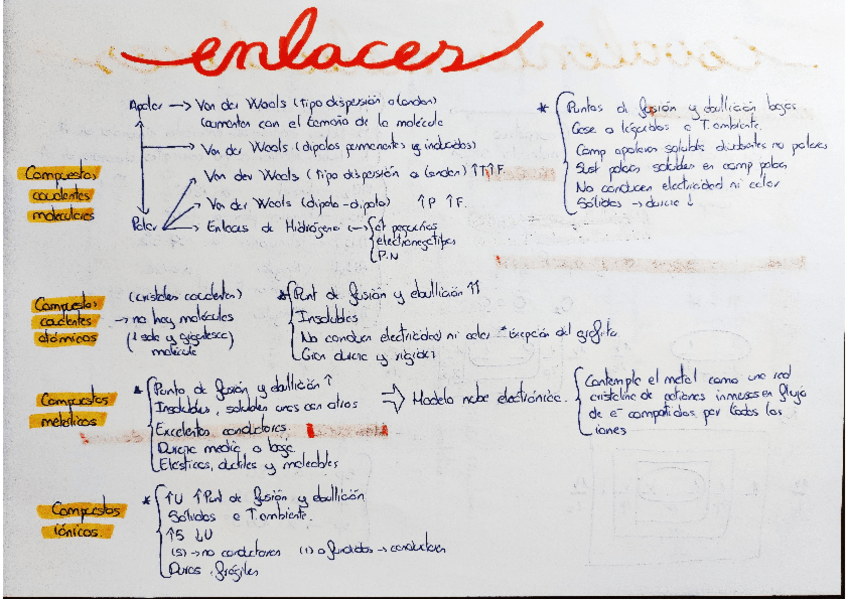 enlaces
Compuestos
covalentes
moleculares
Apolar → Van der Waals (tipo dispersión o London)
(aumentan con el tamaño de la molécula
→ Van der Waals (dipolos permanentes y inducidos)
Van der Waals (tipo dispersión o London) ↑T↑F
→ Van der Waals (dipolo-dipolo) ↑P ↑F.
Polar → Enlaces de Hidrógeno → at pequeños
electronegativos
F.N
* Puntos de fusión y ebullición bajos
Gase o líquidos a T.ambiente.
Comp apolares solubles disolventes no polares
Sust polares solubles en comp polares
No conducen electricidad ni calor
Sólidos → dureza ↓
Compuestos
covalentes
atómicos
(cristales covalentes)
→ no hay moléculas
(1 sola y gigantesca)
molécula
* Punt de fusión y ebullición ↑↑
Insolubles
No conducen electricidad ni calor *Excepción del grafito
Gran dureza y rigidez
Compuestos
metálicos
* Punto de fusión y ebullición ↑
Insolubles, solubles unos con otros
Excelentes conductores.
Dureza media o baja
Elásticos, dúctiles y maleables
⇒ Modelo nube electrónica.
Contempla el metal como una red
cristalina de cationes inmersos en flujo
de e⁻ compartidos por todos los
iones
Compuestos
iónicos.
* ↑U ↑Punt de fusión y ebullición
Sólidos a T.ambiente.
↑S ↓U
(s) → no conductores (l) o fundidos → conductores
Duros, frágiles